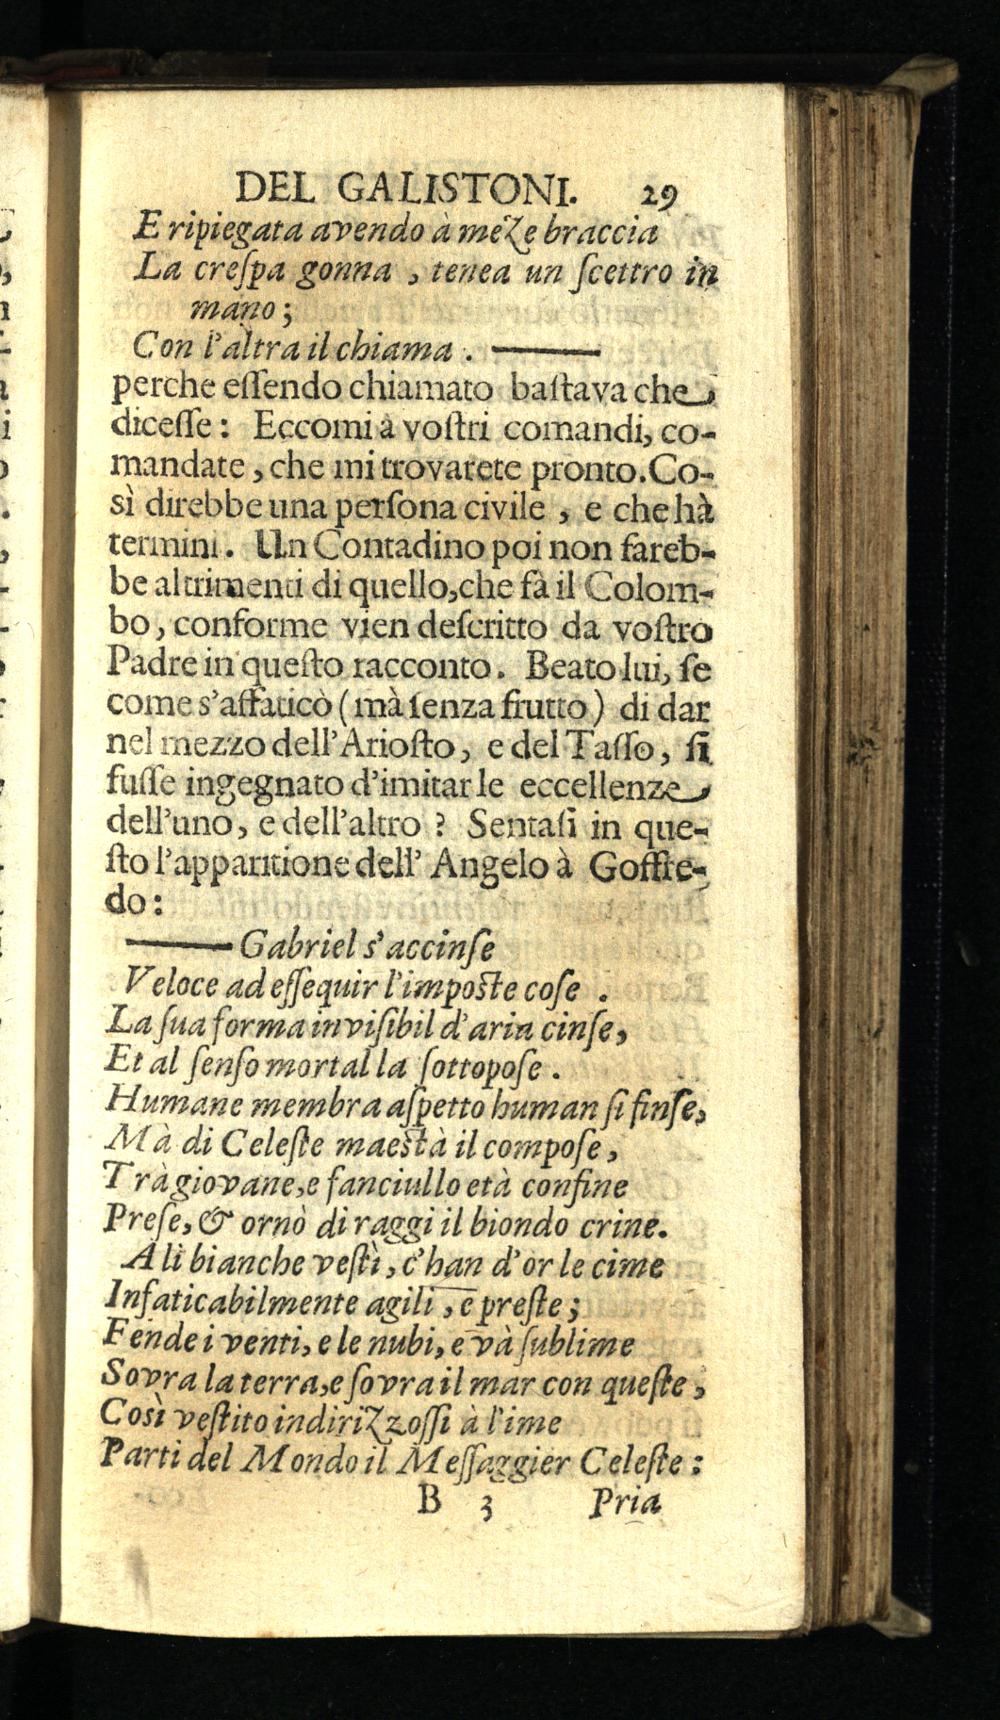 DEL GALISTONI. 29
E ripiegata avendo à meze braccia
La creſpa gonna , tenea un ſcettro in
mano ;
Con l'altra il chiama . ———
perche eſſendo chiamato baſtava che
diceſſe : Eccomi à voſtri comandi, co-
mandate , che mi trovarete pronto. Co-
sì direbbe una perſona civile , e che hà
termini . Un Contadino poi non fareb-
be altrimenti di quello, che fà il Colom-
bo, conforme vien deſcritto da voſtro
Padre in queſto racconto . Beato lui, ſe
come s'affaticò ( mà ſenza frutto ) di dar
nel mezzo dell'Arioſto, e del Taſſo, ſi
fuſſe ingegnato d'imitar le eccellenze
dell'uno, e dell'altro ? Sentaſi in que-
ſto l'apparitione dell' Angelo à Goffre-
do :
——— Gabriel s'accinſe
Veloce ad eſſequir l'impoſte coſe .
La ſua forma inviſibil d'aria cinſe,
Et al ſenſo mortal la ſottopoſe .
Humane membra aſpetto human ſi finſe,
Mà di Celeſte maeſtà il compoſe ,
Trà giovane, e fanciullo età confine
Preſe, & ornò di raggi il biondo crine.
Ali bianche veſtì, c'han d'or le cime
Infaticabilmente agili , e preſte ;
Fende i venti, e le nubi, e và ſublime
Sovra la terra, e ſovra il mar con queſte ,
Così veſtito indirizzoſſi à l'ime
Parti del Mondo il Meſſaggier Celeſte :
B 3 Pria